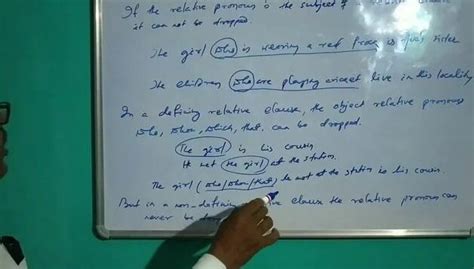 If the relative pronoun is the subject of a relative clause
it can not be dropped
The girl who is wearing a red frock is sister
The children who are playing cricket live in this locality
In a defining relative clause, the object relative pronouns
who, whom, which, that. can be dropped.
The girl is his cousin
He met the girl at the station.
The girl (who/whom/that) he met at the station is his cousin.
But in a non-defining clause the relative pronoun can
never be